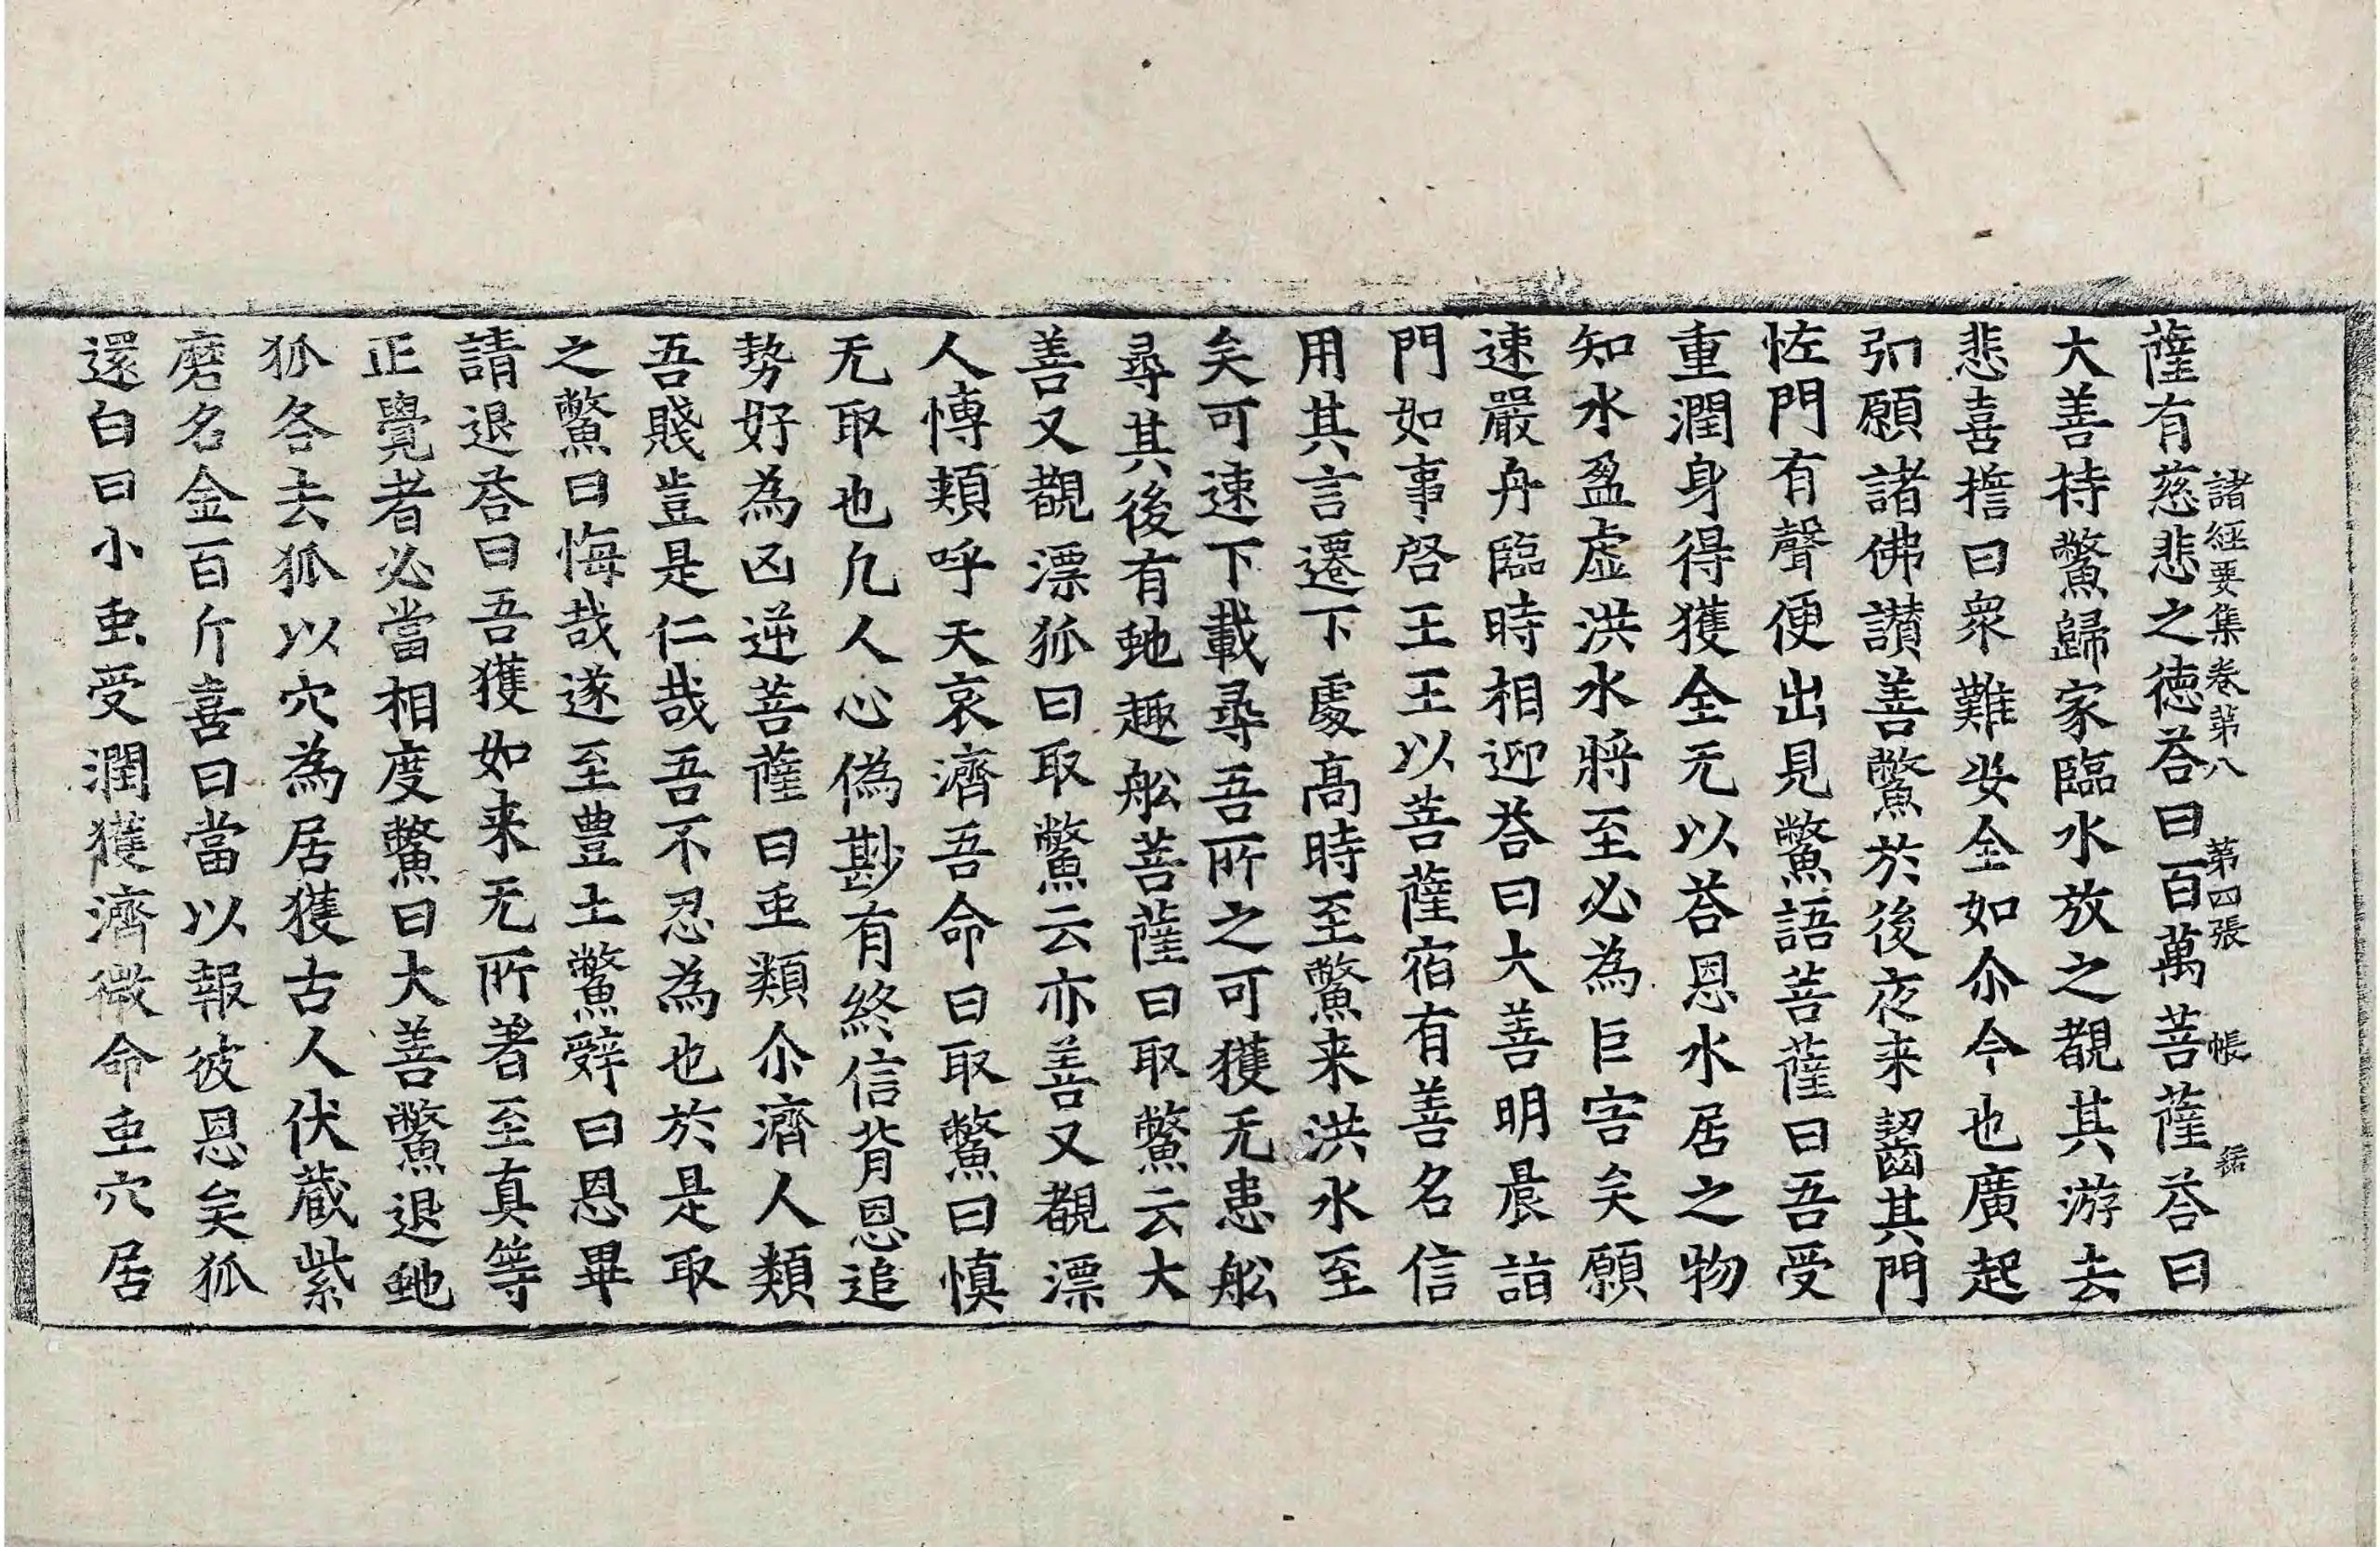 諸經要集卷第八　第四張　帳
薩有慈悲之徳荅曰百萬菩薩荅曰
大善持鱉歸家臨水放之覩其游去
悲喜擔曰衆難安全如尒今也廣起
弘願諸佛讃善鱉於後夜来齧其門
怪門有聲便出見鱉語菩薩曰吾受
重潤身得獲全无以荅恩水居之物
知水盈虚洪水將至必為巨害矣願
速嚴舟臨時相迎荅曰大善明晨詣
門如事啓王王以菩薩宿有善名信
用其言遷下處髙時至鱉来洪水至
矣可速下載尋吾所之可獲无患舩
尋其後有虵趣舩菩薩曰取鱉云大
善又覩漂狐曰取鱉云亦善又覩漂
人慱頰呼天哀濟吾命曰取鱉曰慎
无取也凢人心偽尠有終信背恩追
勢好為凶逆菩薩曰䖝類尒濟人類
吾賤豈是仁哉吾不忍為也於是取
之鱉曰悔哉遂至豊土鱉辤曰恩畢
請退荅曰吾獲如来无所著至真等
正覺者必當相度鱉曰大善鱉退虵
狐各去狐以穴為居獲古人伏蔵紫
磨名金百斤喜曰當以報彼恩矣狐
還白曰小䖝受潤獲濟微命䖝穴居